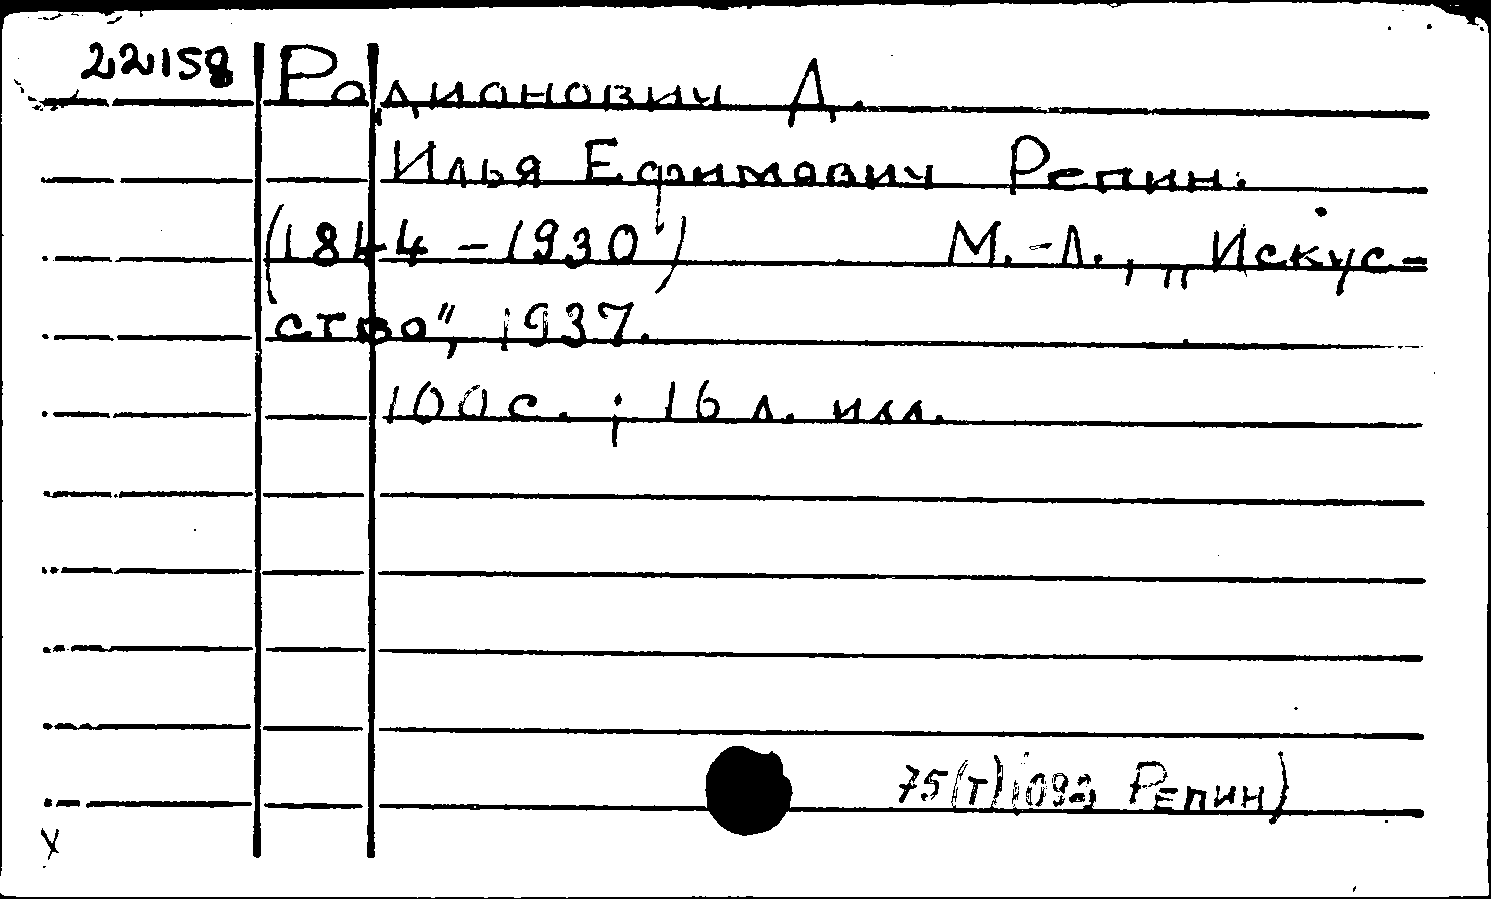 22158 Родионович Д.
Илья Ефимович Репин.
(1844-1930) М.-Л., „Искус-
ство", 1937.
100с. ; 16 л. илл.
75(Т)(092 Репин)
X